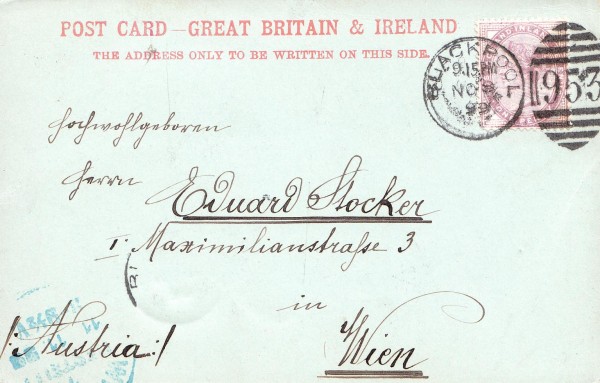 POST CARD — GREAT BRITAIN & IRELAND
THE ADDRESS ONLY TO BE WRITTEN ON THIS SIDE.
BLACKPOOL
9.15PM
NO 9
99
953
Hochwohlgeboren
Herrn Eduard Stocker
I. Maximilianstraße 3
in
/:Austria:/ Wien